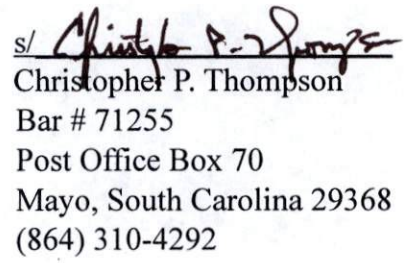 s/ Christopher P. Thompson
Christopher P. Thompson
Bar # 71255
Post Office Box 70
Mayo, South Carolina 29368
(864) 310-4292